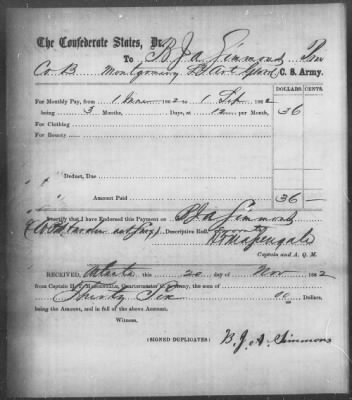 The Confederate States, Dr.
To B. J. A. Simmonds
Co B Montgomery C. S. Army.
DOLLARS. CENTS.
For Monthly Pay, from 1 186 2 to 1 Sep 186 2
being 3 Months, Days, at 12 per Month, 36
For Clothing
For Bounty
Deduct, Due
Amount Paid 36 —
I Certify that I have Endorsed this Payment on B J A Simmonds
Descriptive Roll.
Captain and A. Q. M.
RECEIVED, Atlanta this 20 day of Nov 186 2
from Captain Quartermaster C. S. Army, the sum of
Thirty Six Dollars,
being the Amount, and in full of the above Account.
Witness,
(SIGNED DUPLICATES) B. J. A. Simmons